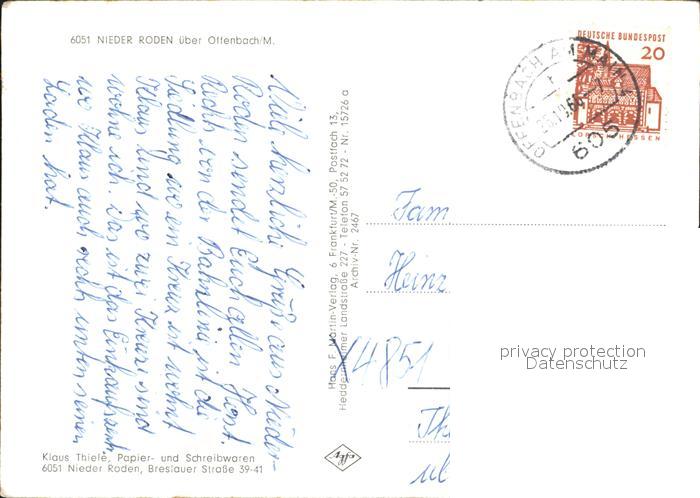 6051 NIEDER RODEN über Offenbach/M.
Viele herzliche Grüße aus Nieder-
Roden sendet Euch allen Horst.
Rechts von der Bahnlinie ist die
Siedlung wo ein Kreuz ist wohnt
Klaus und wo zwei Kreuze sind
wohne ich. Das ist das Einkaufszent.
wo Klaus auch rechts unten seinen
Laden hat.
Klaus Thiele, Papier- und Schreibwaren
6051 Nieder Roden, Breslauer Straße 39-41
Hans F. Martin-Verlag, 6 Frankfurt/M.-50, Postfach 13,
Heddernheimer Landstraße 227 - Telefon 57 52 72 - Nr. 15726 a
Archiv-Nr. 2467
DEUTSCHE BUNDESPOST
20
LORSCH/HESSEN
OFFENBACH AM MAIN
605
Fam
Heinz
4851
privacy protection
Datenschutz